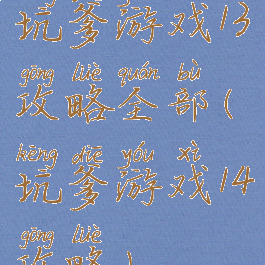 坑爹游戏13
gōng lüè quán bù
攻略全部(
kēng diē yóu xì
坑爹游戏14
gōng lüè
攻略)